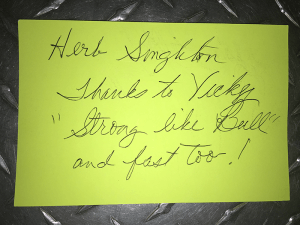 Herb Singleton
Thanks to Vickey
"Strong like Bull"
and fast too!